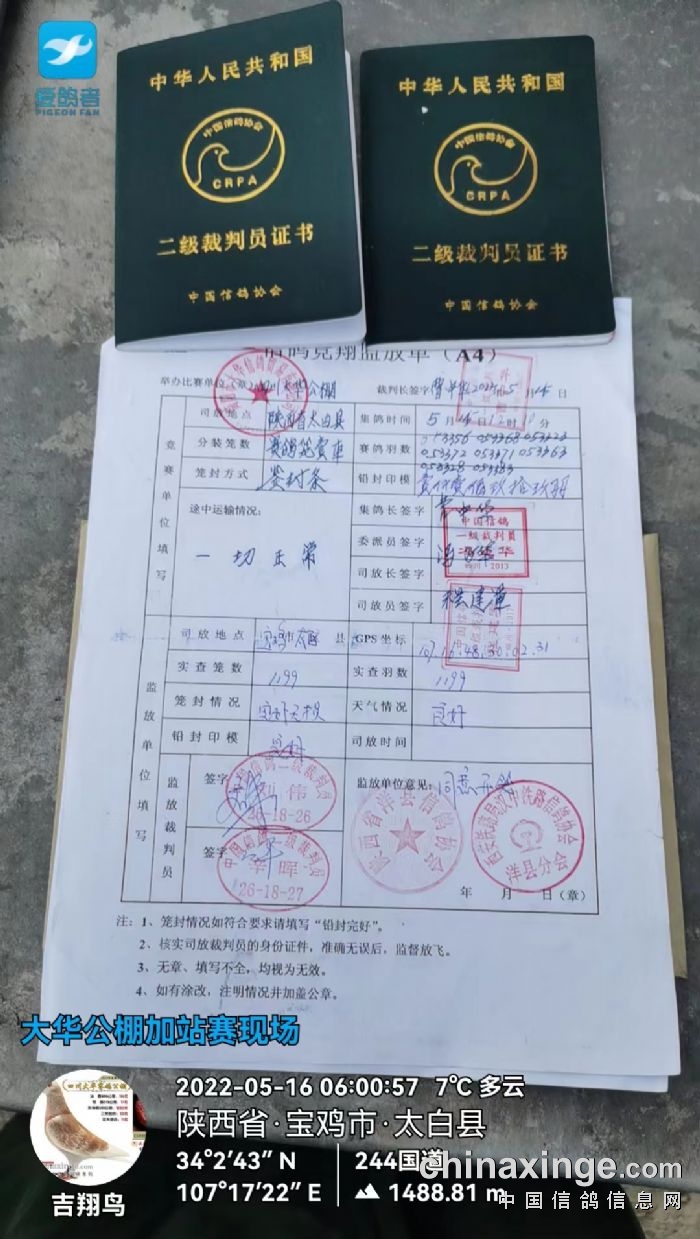 爱鸽者
PIGEON FAN
中华人民共和国
中国信鸽协会
CRPA
二级裁判员证书
中国信鸽协会
中华人民共和国
中国信鸽协会
CRPA
二级裁判员证书
中国信鸽协会
信鸽竞翔监放单（A4）
举办比赛单位（章） 四川大华公棚 裁判长签字 2022年5月15日
竞赛单位填写
司放地点 陕西省太白县 集鸽时间 5月15日12时 分
分装笼数 赛鸽笼壹车 赛鸽羽数
笼封方式 签封条 铅封印模
途中运输情况： 集鸽长签字
一切正常 委派员签字
中国信鸽
一级裁判员
司放长签字
司放员签字
监放单位填写
司放地点 宝鸡市太白县 GPS坐标
实查笼数 1199 实查羽数 1199
笼封情况 完好无损 天气情况 良好
铅封印模 良好 司放时间
监放裁判员 签字 监放单位意见： 同意开笼
26-18-26
签字
26-18-27
陕西省洋县信鸽协会
西安铁路局汉中铁路信鸽协会
洋县分会
年 月 日（章）
注：1、笼封情况如符合要求请填写“铅封完好”。
2、核实司放裁判员的身份证件，准确无误后，监督放飞。
3、无章、填写不全，均视为无效。
4、如有涂改，注明情况并加盖公章。
大华公棚加站赛现场
四川大华赛鸽公棚
吉翔鸟
2022-05-16 06:00:57 7℃ 多云
陕西省·宝鸡市·太白县
34°2'43" N 244国道
107°17'22" E 1488.81 m
Chinaxinge.com
中国信鸽信息网